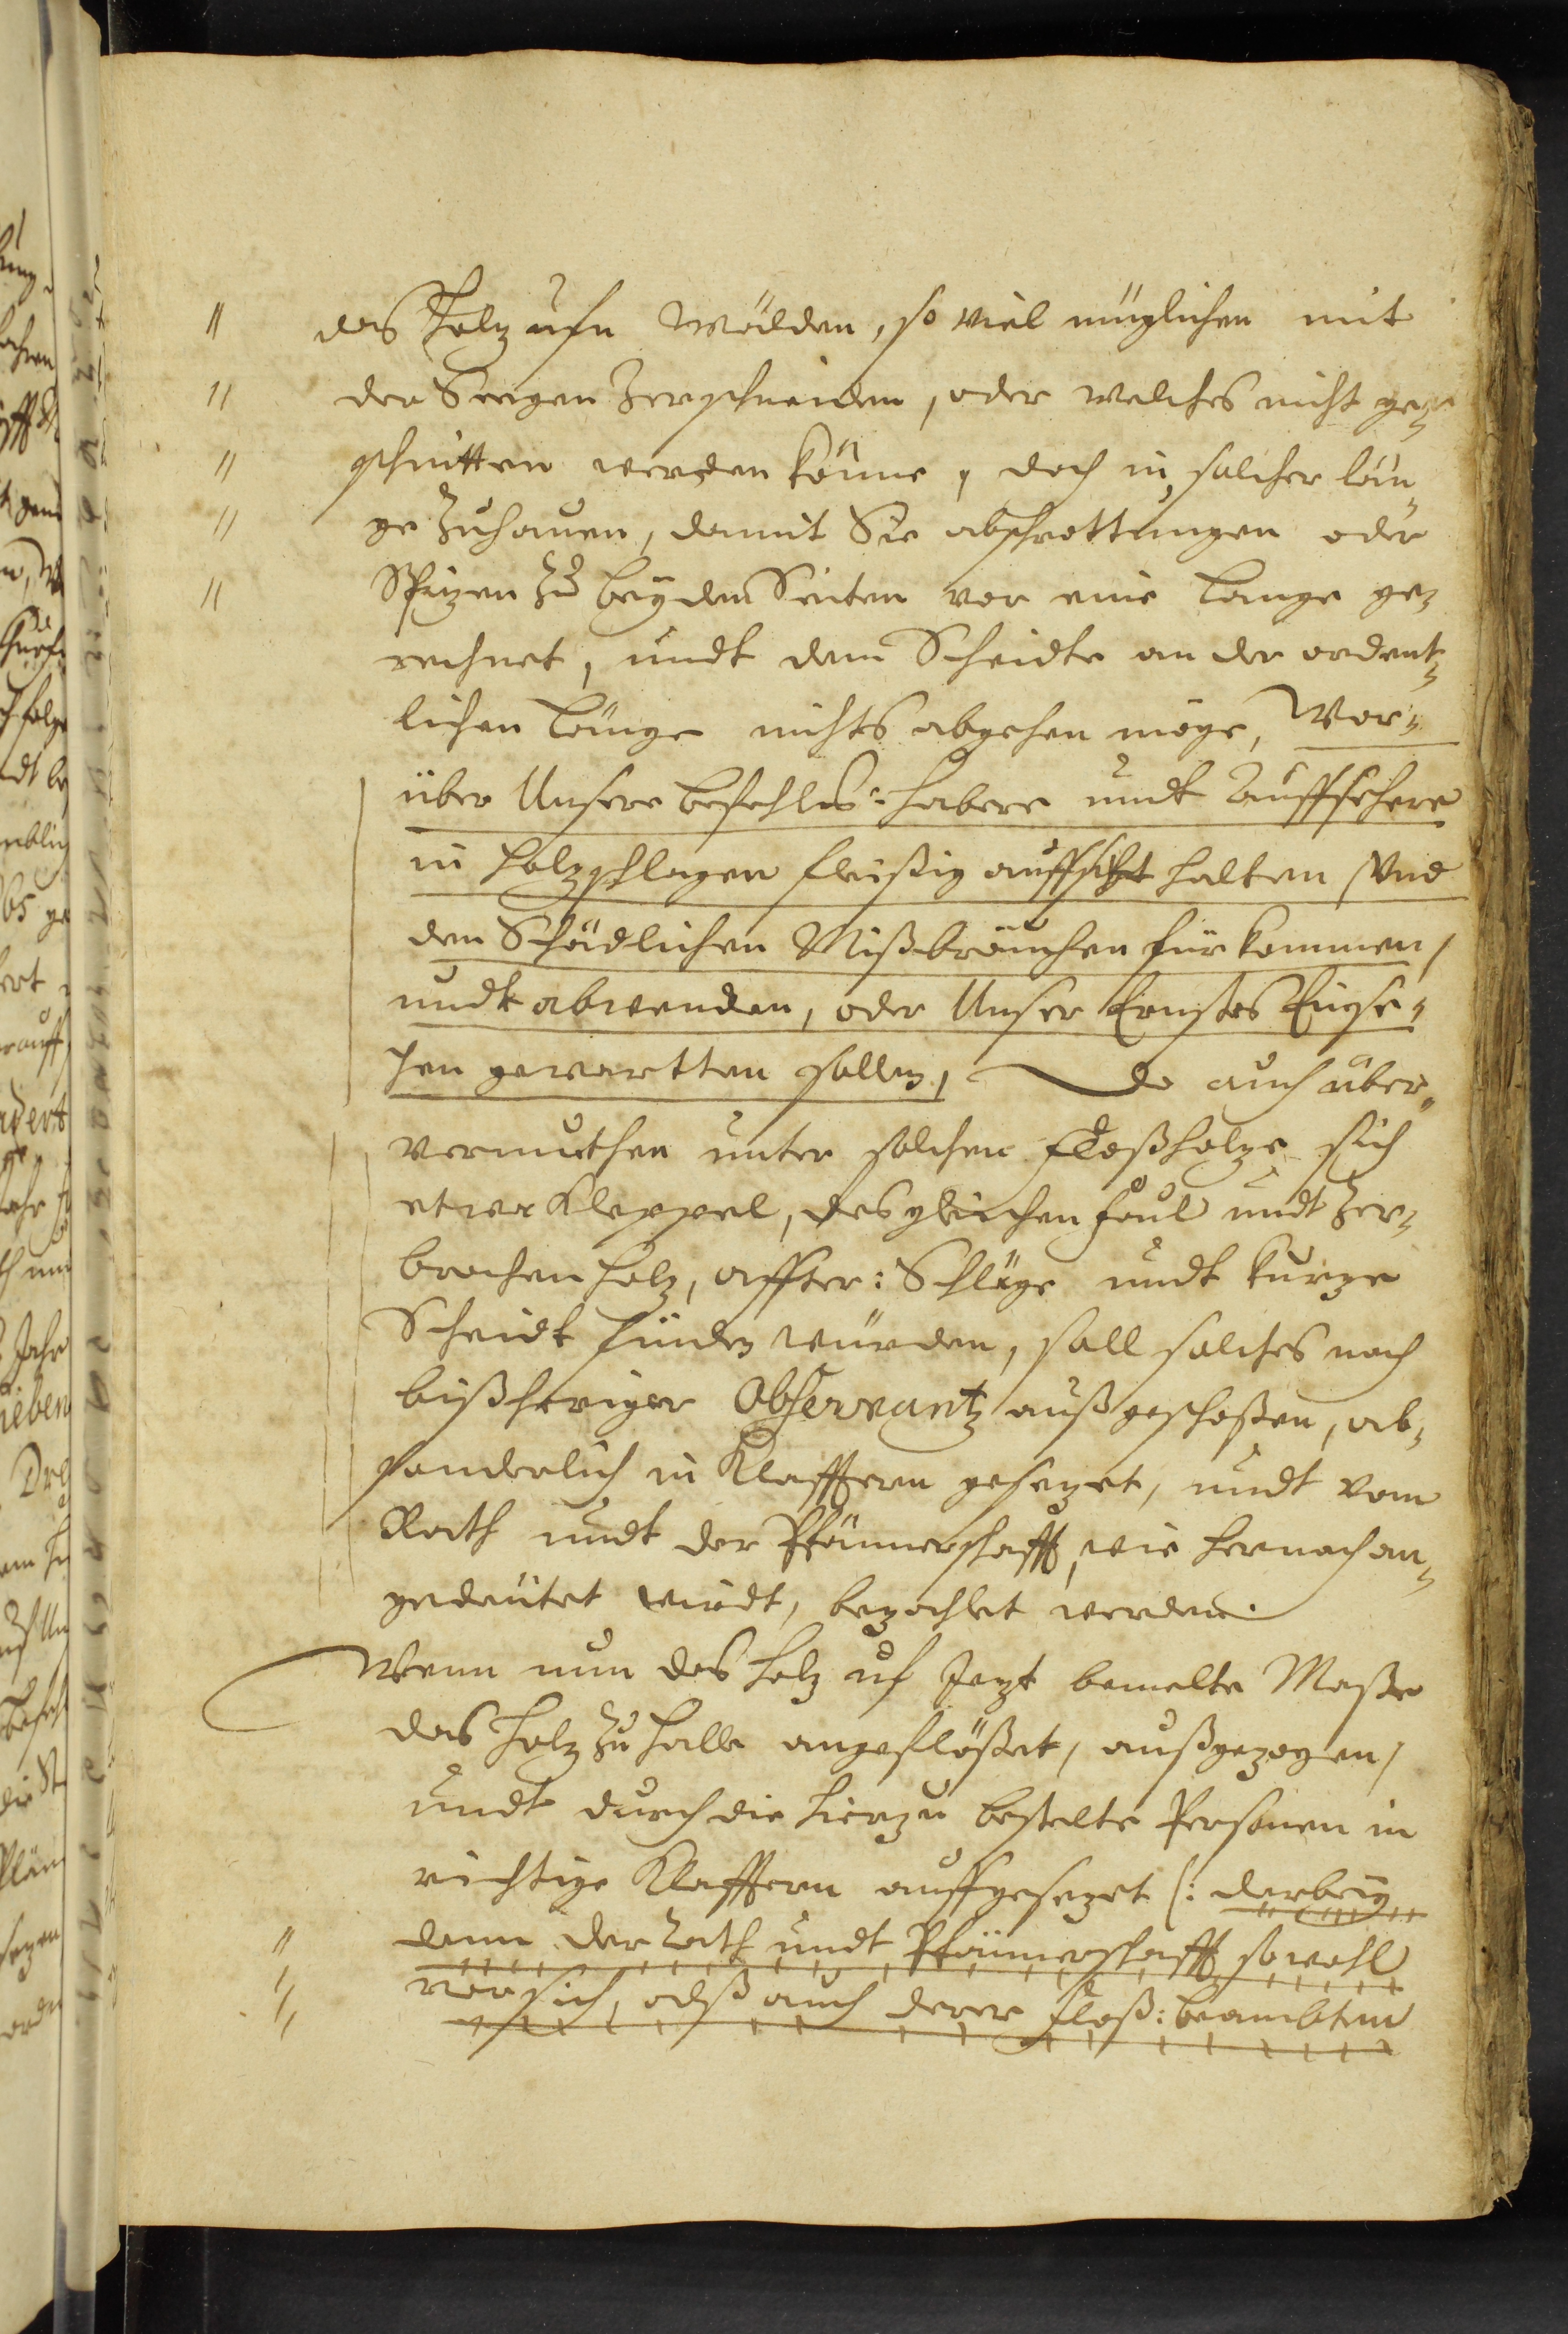 das Holz ufn Wälden, so viel müglichen mit
der Seegen Zerschneiden, oder welches nicht ge-
schnitten werden könne, doch in solcher län-
ge Zuhauen, damit Sie abschrottungen oder
Spizen Zu beyden Seiten vor eine Lange ge-
rechnet, undt dem Scheidte an der ordent-
lichen Länge nichts abgehen möge, Wor-
über Unsere befehls-habere undt Auffsehere
in Holzschlagen fleißig auffsicht halten und
den Schädlichen Mißbräuchen fürkommen,
undt abwenden, oder Unser Ernstes Einse-
hen gewartten sollen, Do auch über
vermuthen unter solchen Floßholze sich
etwa Kleppel, desgleichen faul undt Zer-
brochen Holz, affter: Schläge undt kurze
Scheidt finden würden, soll solches nach
bißheriger Observantz außgeschoßen, ab-
sonderlich in Klafftern gesezet, undt vom
Rath undt der Pfännerschafft, wie hernach an-
gedeütet wirdt, bezahlet werden.
Wenn nun das Holz uf Jezt bemelte Maße
das Holz Zu Halle angeflößet, außgezogen,
undt durch die hierzu bestelte Personen in
richtige Klafftern auffgesezet (: darbey
dann der Rath undt Pfännerschafft sowohl
vor sich, alß auch derer Floß: beambten